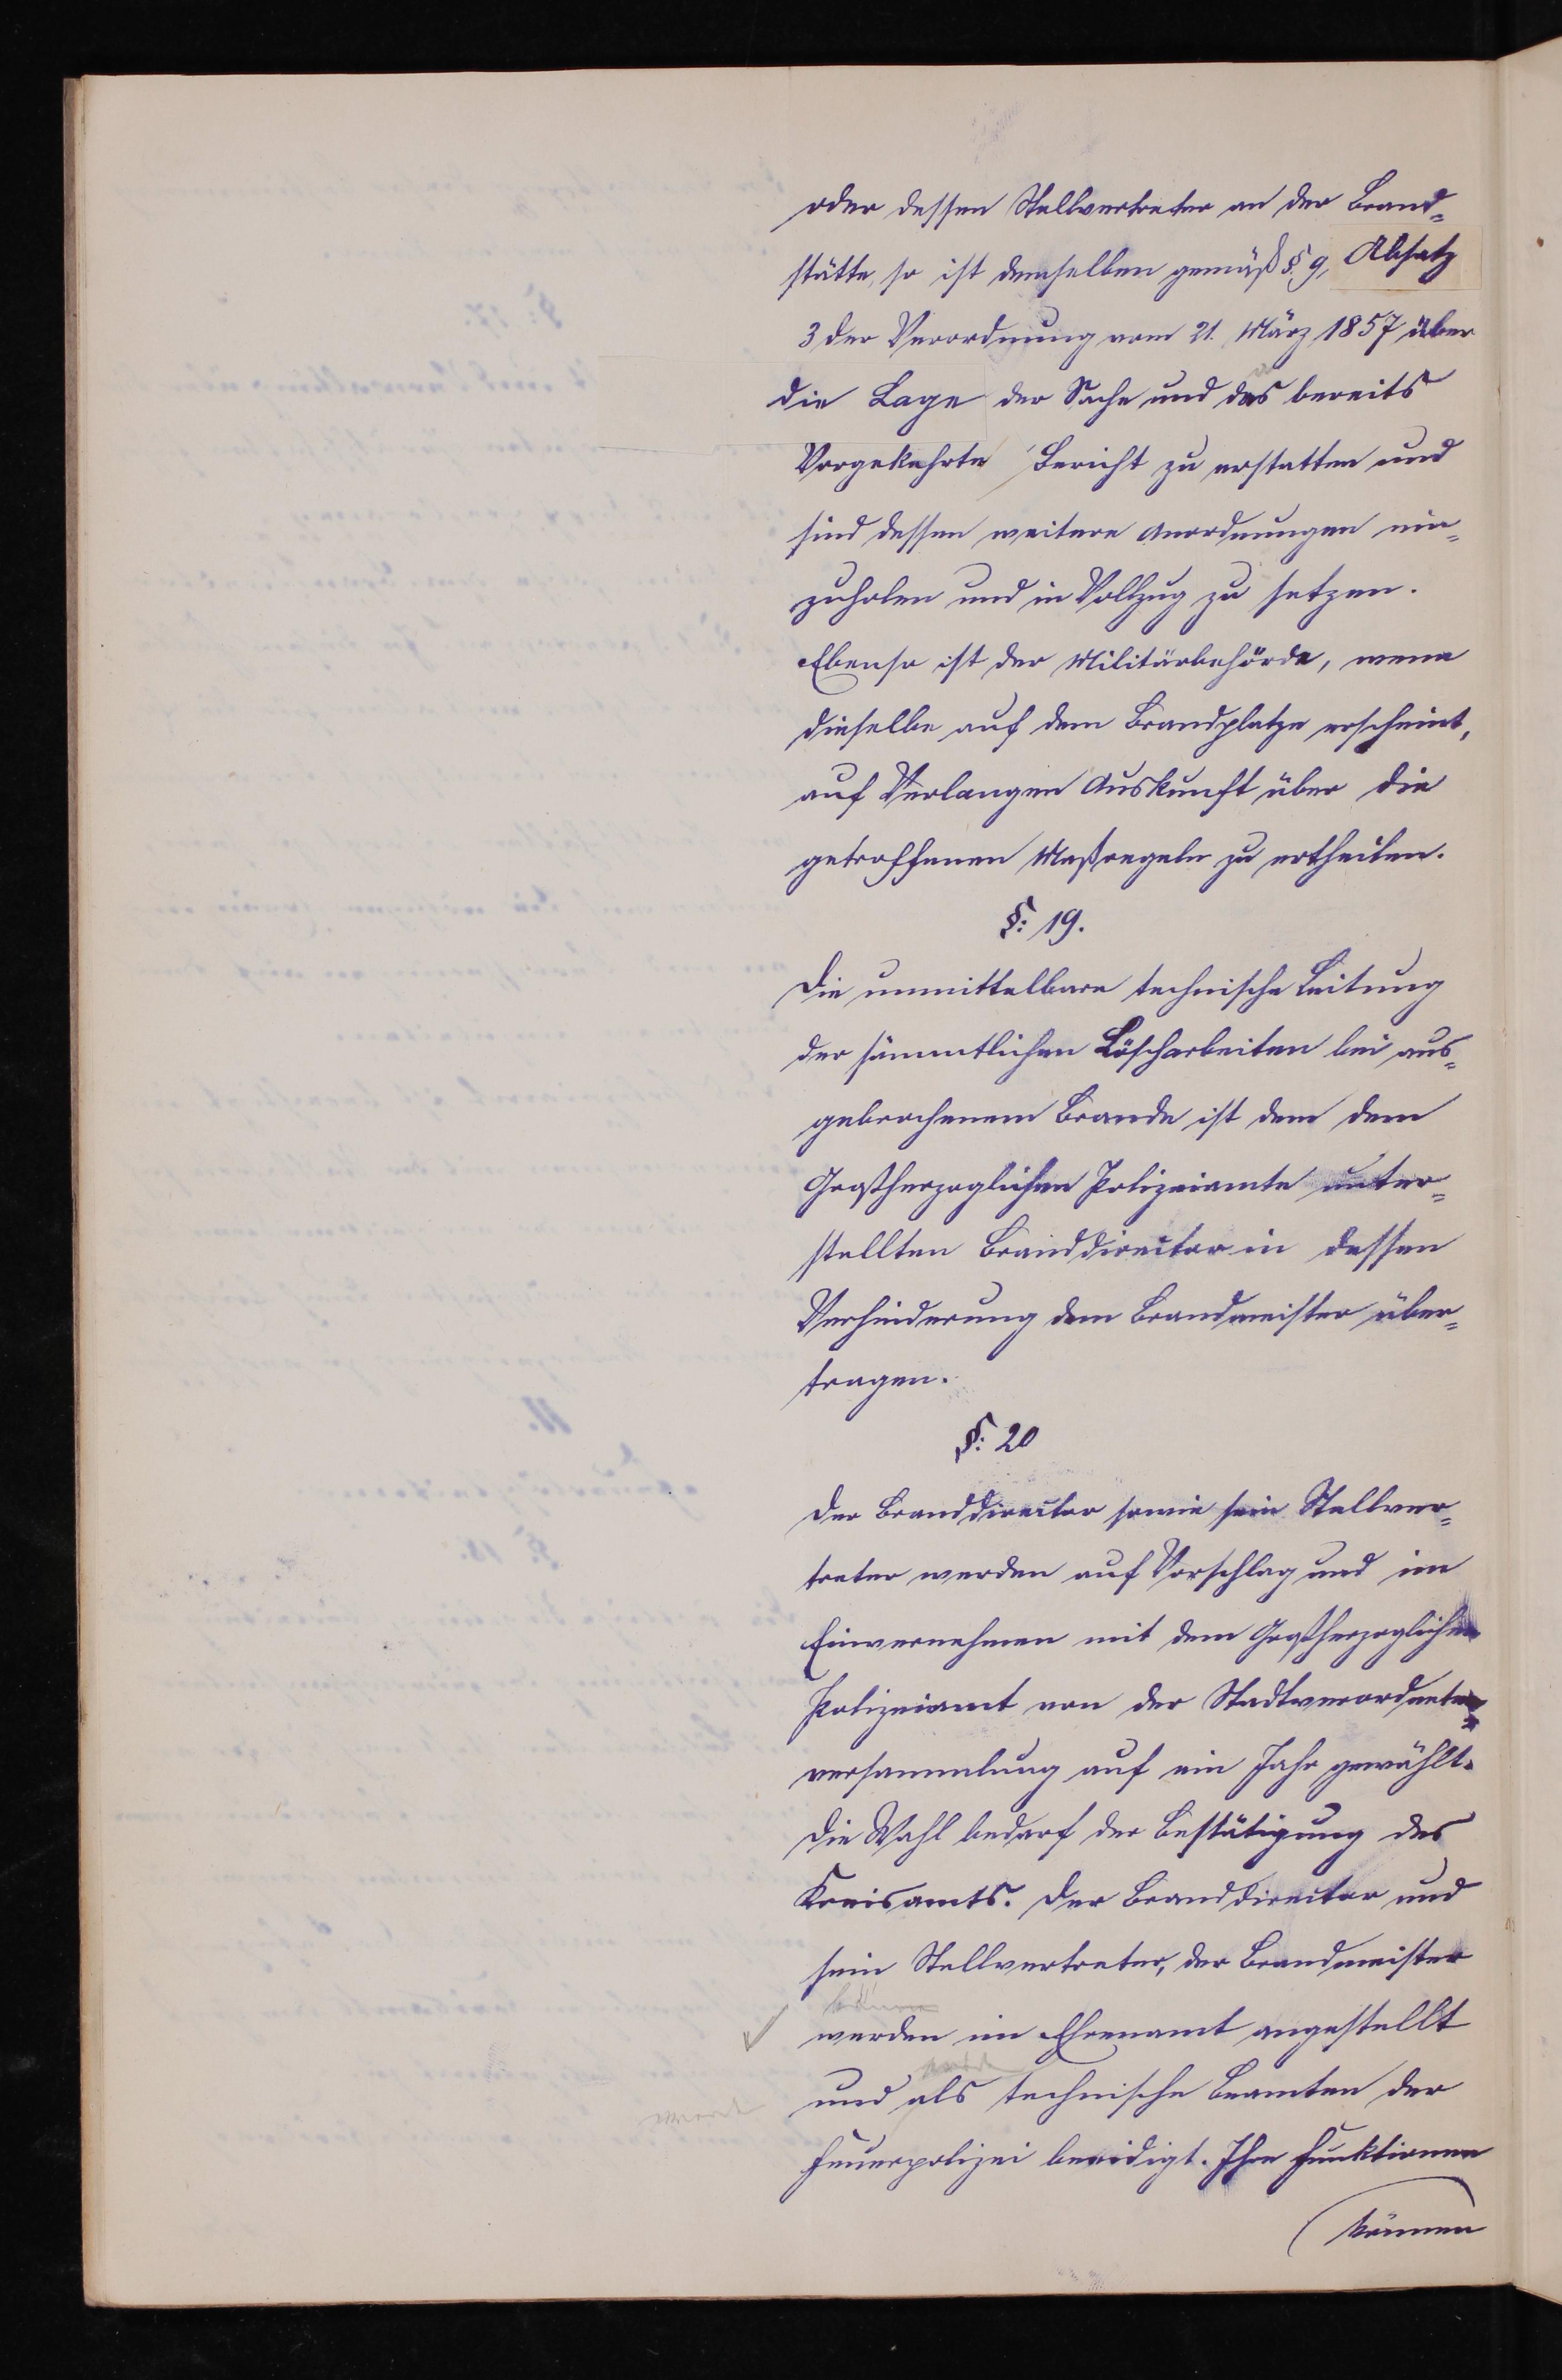 oder dessen Stellvertreter an der Brand=
stätte, so ist demselben gemäß §. 9, Absatz
3 der Verordnung vom 21. März 1857 über
die Lage der Sache und das bereits
Vorgekehrte Bericht zu erstatten und
sind dessen weitere Anordnungen ein=
zuholen und in Vollzug zu setzen.
Ebenso ist der Militärbehörde, wenn
dieselbe auf dem Brandplatze erscheint,
auf Verlangen Auskunft über die
getroffenen Maßregeln zu ertheilen.
§: 19.
Die unmittelbare technische Leitung
der sämmtlichen Löscharbeiten bei aus=
gebrochenem Brande ist dem dem
Großherzoglichen Polizeiamte unter=
stellten Branddirector in dessen
Verhinderung dem Brandmeister über=
tragen.
§: 20
Der Branddirector sowie sein Stellver=
treter werden auf Vorschlag und im
Einvernehmen mit dem Großherzoglichen
Polizeiamt von der Stadtverordneten=
versammlung auf ein Jahr gewählt.
Die Wahl bedarf der Bestätigung des
Kreisamts. Der Branddirector und
sein Stellvertreter, der Brandmeister
können
werden im Ehrenamt angestellt
und als technische Beamten der
Feuerpolizei beeidigt. Ihre Funktionen
können